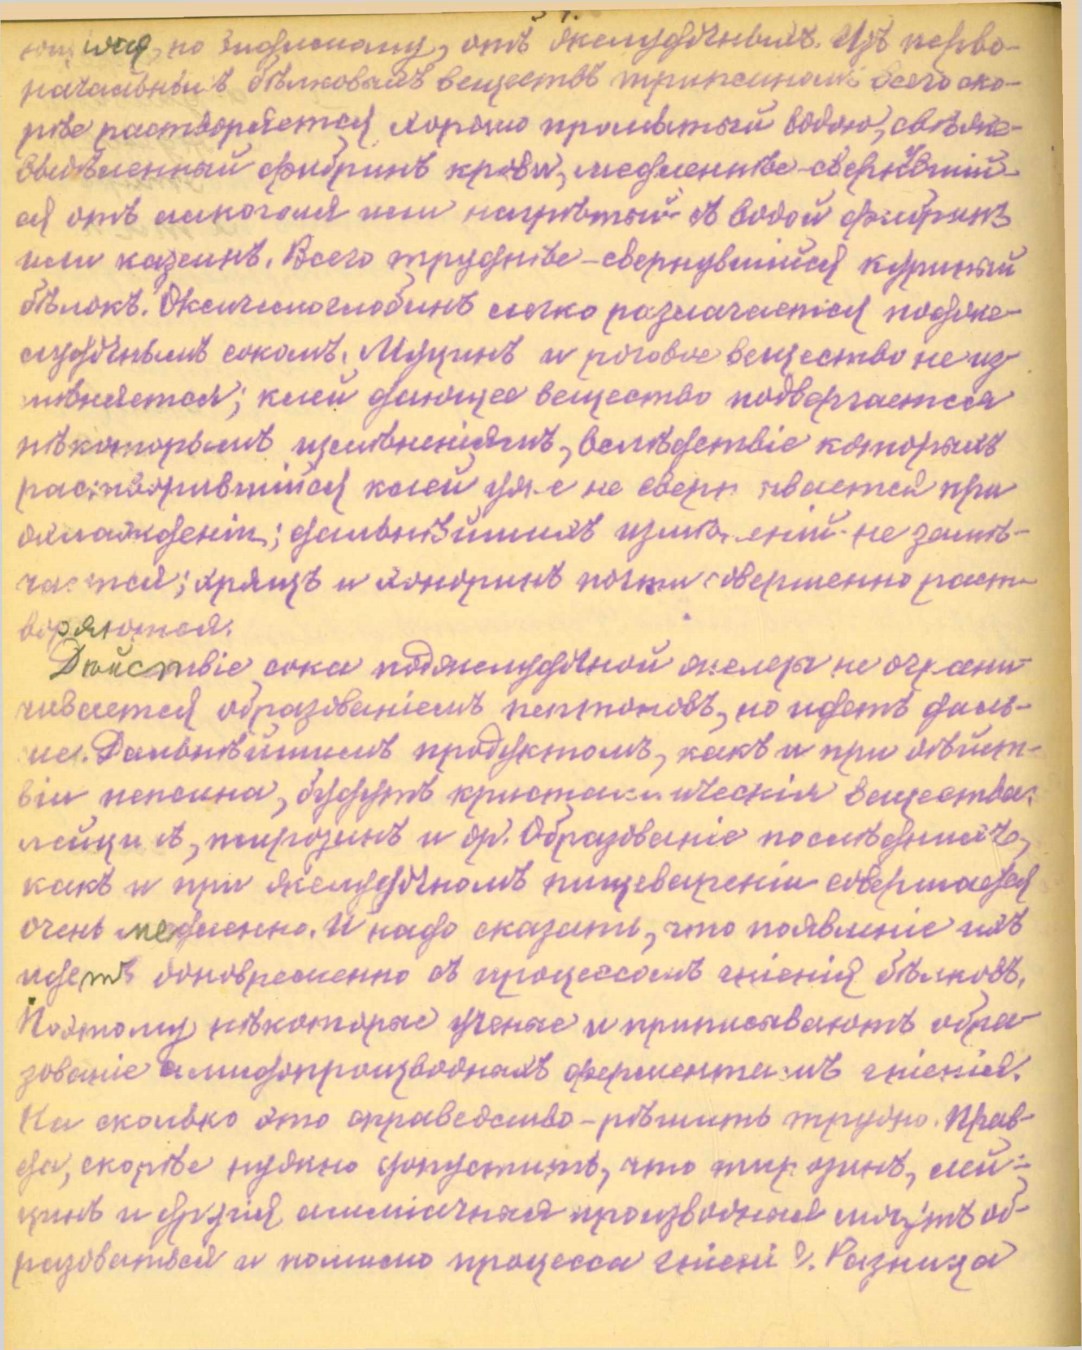 ющiяся, по видимому, отъ желудочныхъ. Изъ перво-
начальныхъ бѣлковыхъ веществъ трипсиномъ всего ско-
рѣе растворяется хорошо промытый водою, свѣже-
выдѣленный фибринъ крови, медленнѣе – свернувшій-
ся отъ алкоголя или нагрѣтый съ водой фибринъ
или казеинъ. Всего труднѣе – свернувшійся куриный
бѣлокъ. Оксигемоглобинъ легко разлагается поджe-
лудочнымъ сокомъ. Муцинъ и роговое вещество не из-
мѣняется; клей дающее вещество подвергается
нѣкоторымъ измѣненіямъ, вслѣдствіе которыхъ
растворившійся клей уже не свертывается при
охлажденіи; дальнѣйшихъ измѣненій не замѣ-
чается; хрящъ и хондринъ почти совершенно раст-
воряются.
Дѣйствіе сока поджелудочной железы не ограни-
чивается образованіемъ пептоновъ, но идетъ даль-
ше. Дальнѣйшимъ продуктомъ, какъ и при дѣйст-
віи пепсина, будутъ кристаллическія вещества:
лейцинъ, тирозинъ и др. Образованіе послѣднихъ,
какъ и при желудочномъ пищевареніи совершается
очень медленно. И надо сказать, что появленіе ихъ
идетъ одновременно съ процессомъ гніенія бѣлковъ.
Поэтому нѣкоторые ученые и приписываютъ обра-
зованіе амидопроизводныхъ ферментамъ гніенія.
На сколько это справедливо – рѣшить трудно. Прав-
да, скорѣе нужно допустить, что тирозинъ, лей-
цинъ и другія амміачныя производныя могутъ об-
разоваться и помимо процесса гніенія. Разница